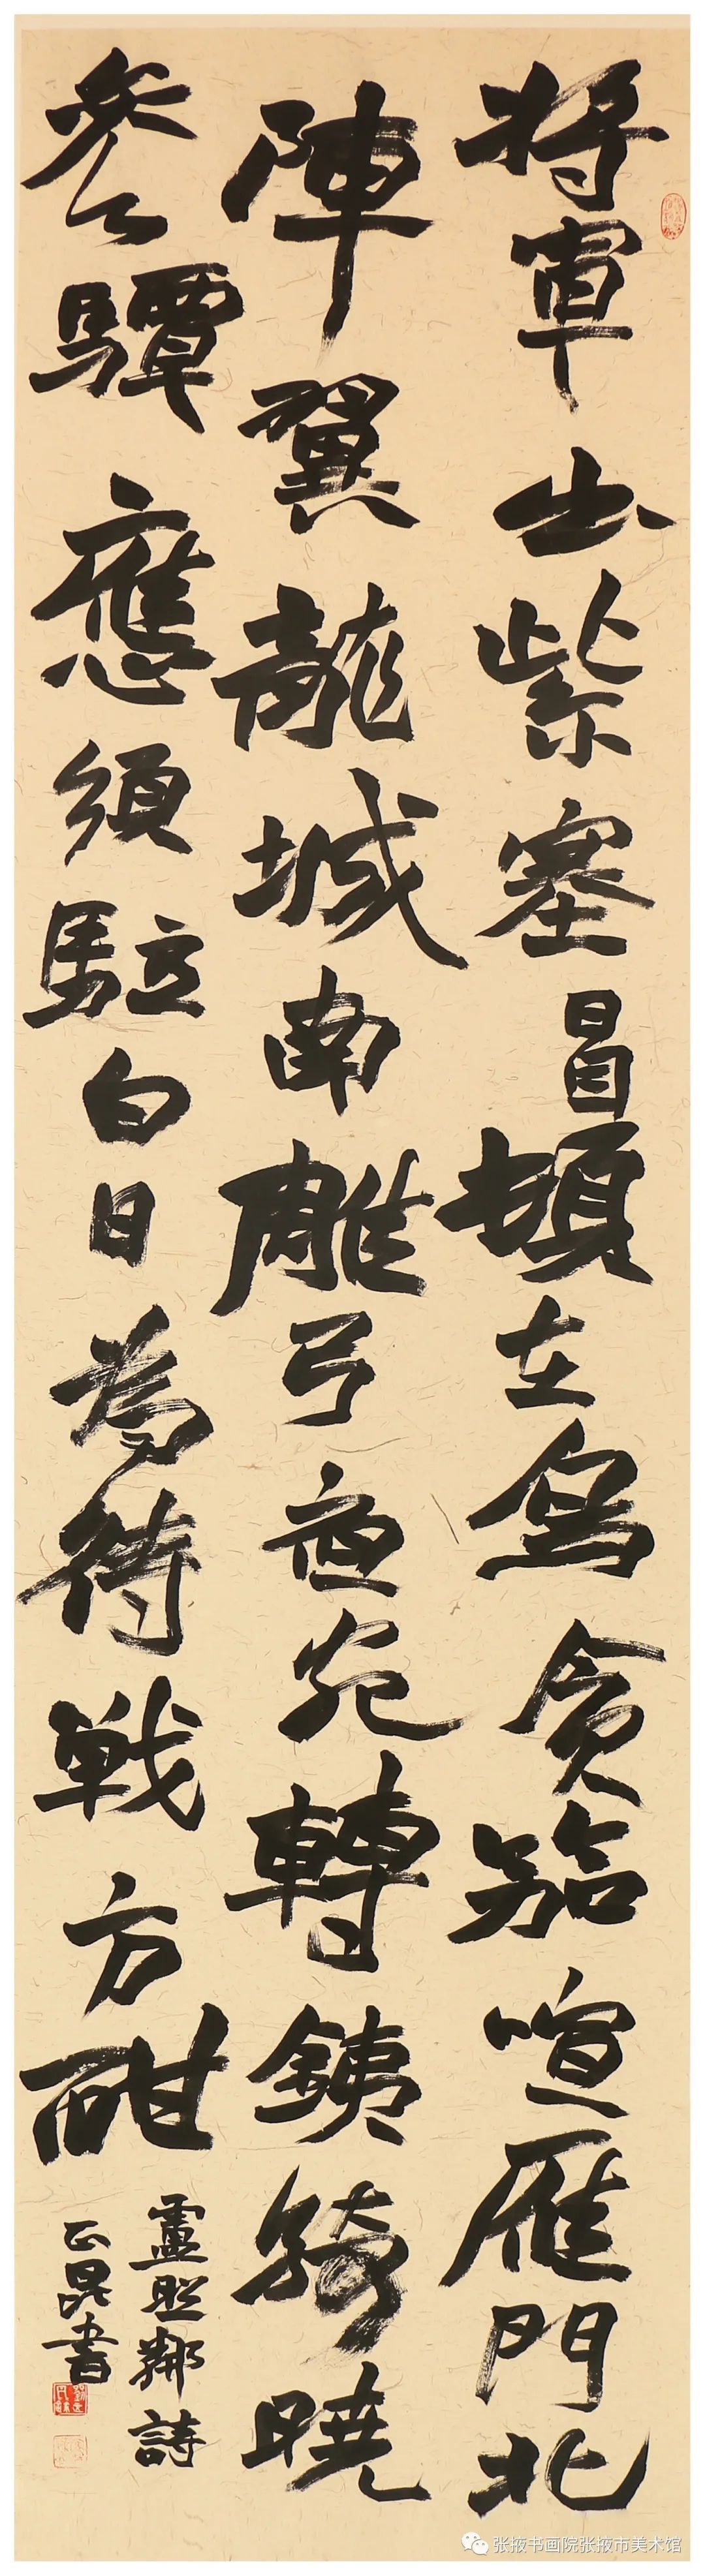 将軍出紫塞冒頓在烏貪笳喧雁門北
陣翼龍城南雕弓夜宛轉銕騎曉
參驔應須駐白日為待戰方酣
盧照鄰詩
正昆書
张掖书画院张掖市美术馆